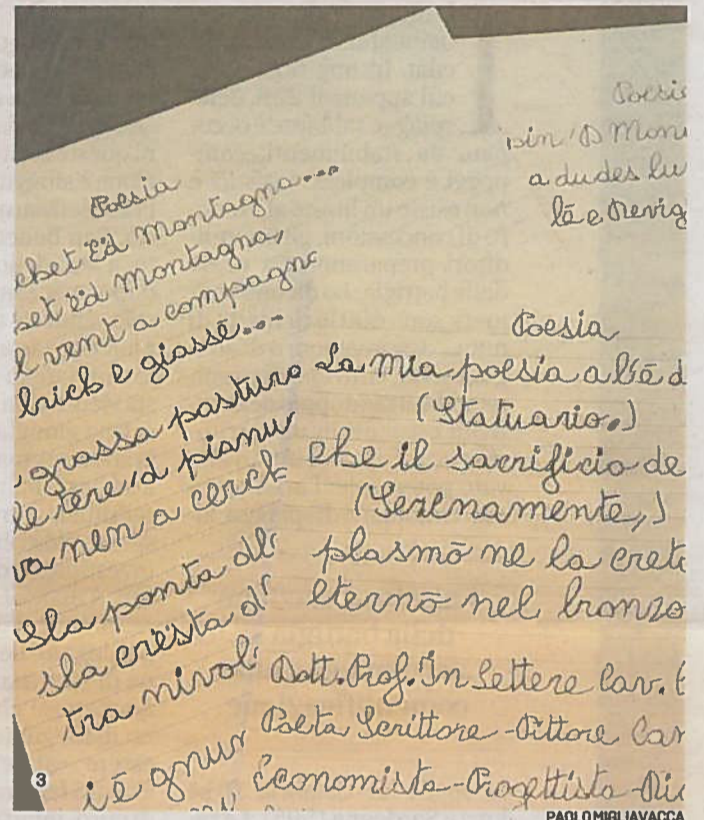 Poesia
ebet ëd montagna...
bet ëd montagna,
l vent a compagna
brich e giassè...
grassa pasturo
le tere, d pianur
va nen a cerch
sla ponta dl
sla crësta d'
tra nivol
i ē gnun
Poesia
'sin 'D Mon
a dudes lu
lē e Nevig
Poesia
La mia poesia a l'ē d
(Statuario.)
che il sacrificio de
(Serenamente,)
plasmō ne la creta
eternō nel bronzo
Dott. Prof. In Lettere Cav. C
Poeta Scrittore - Pittore Can
Economista - Progettista - Ric
3
PAOLO MIGLIAVACCA